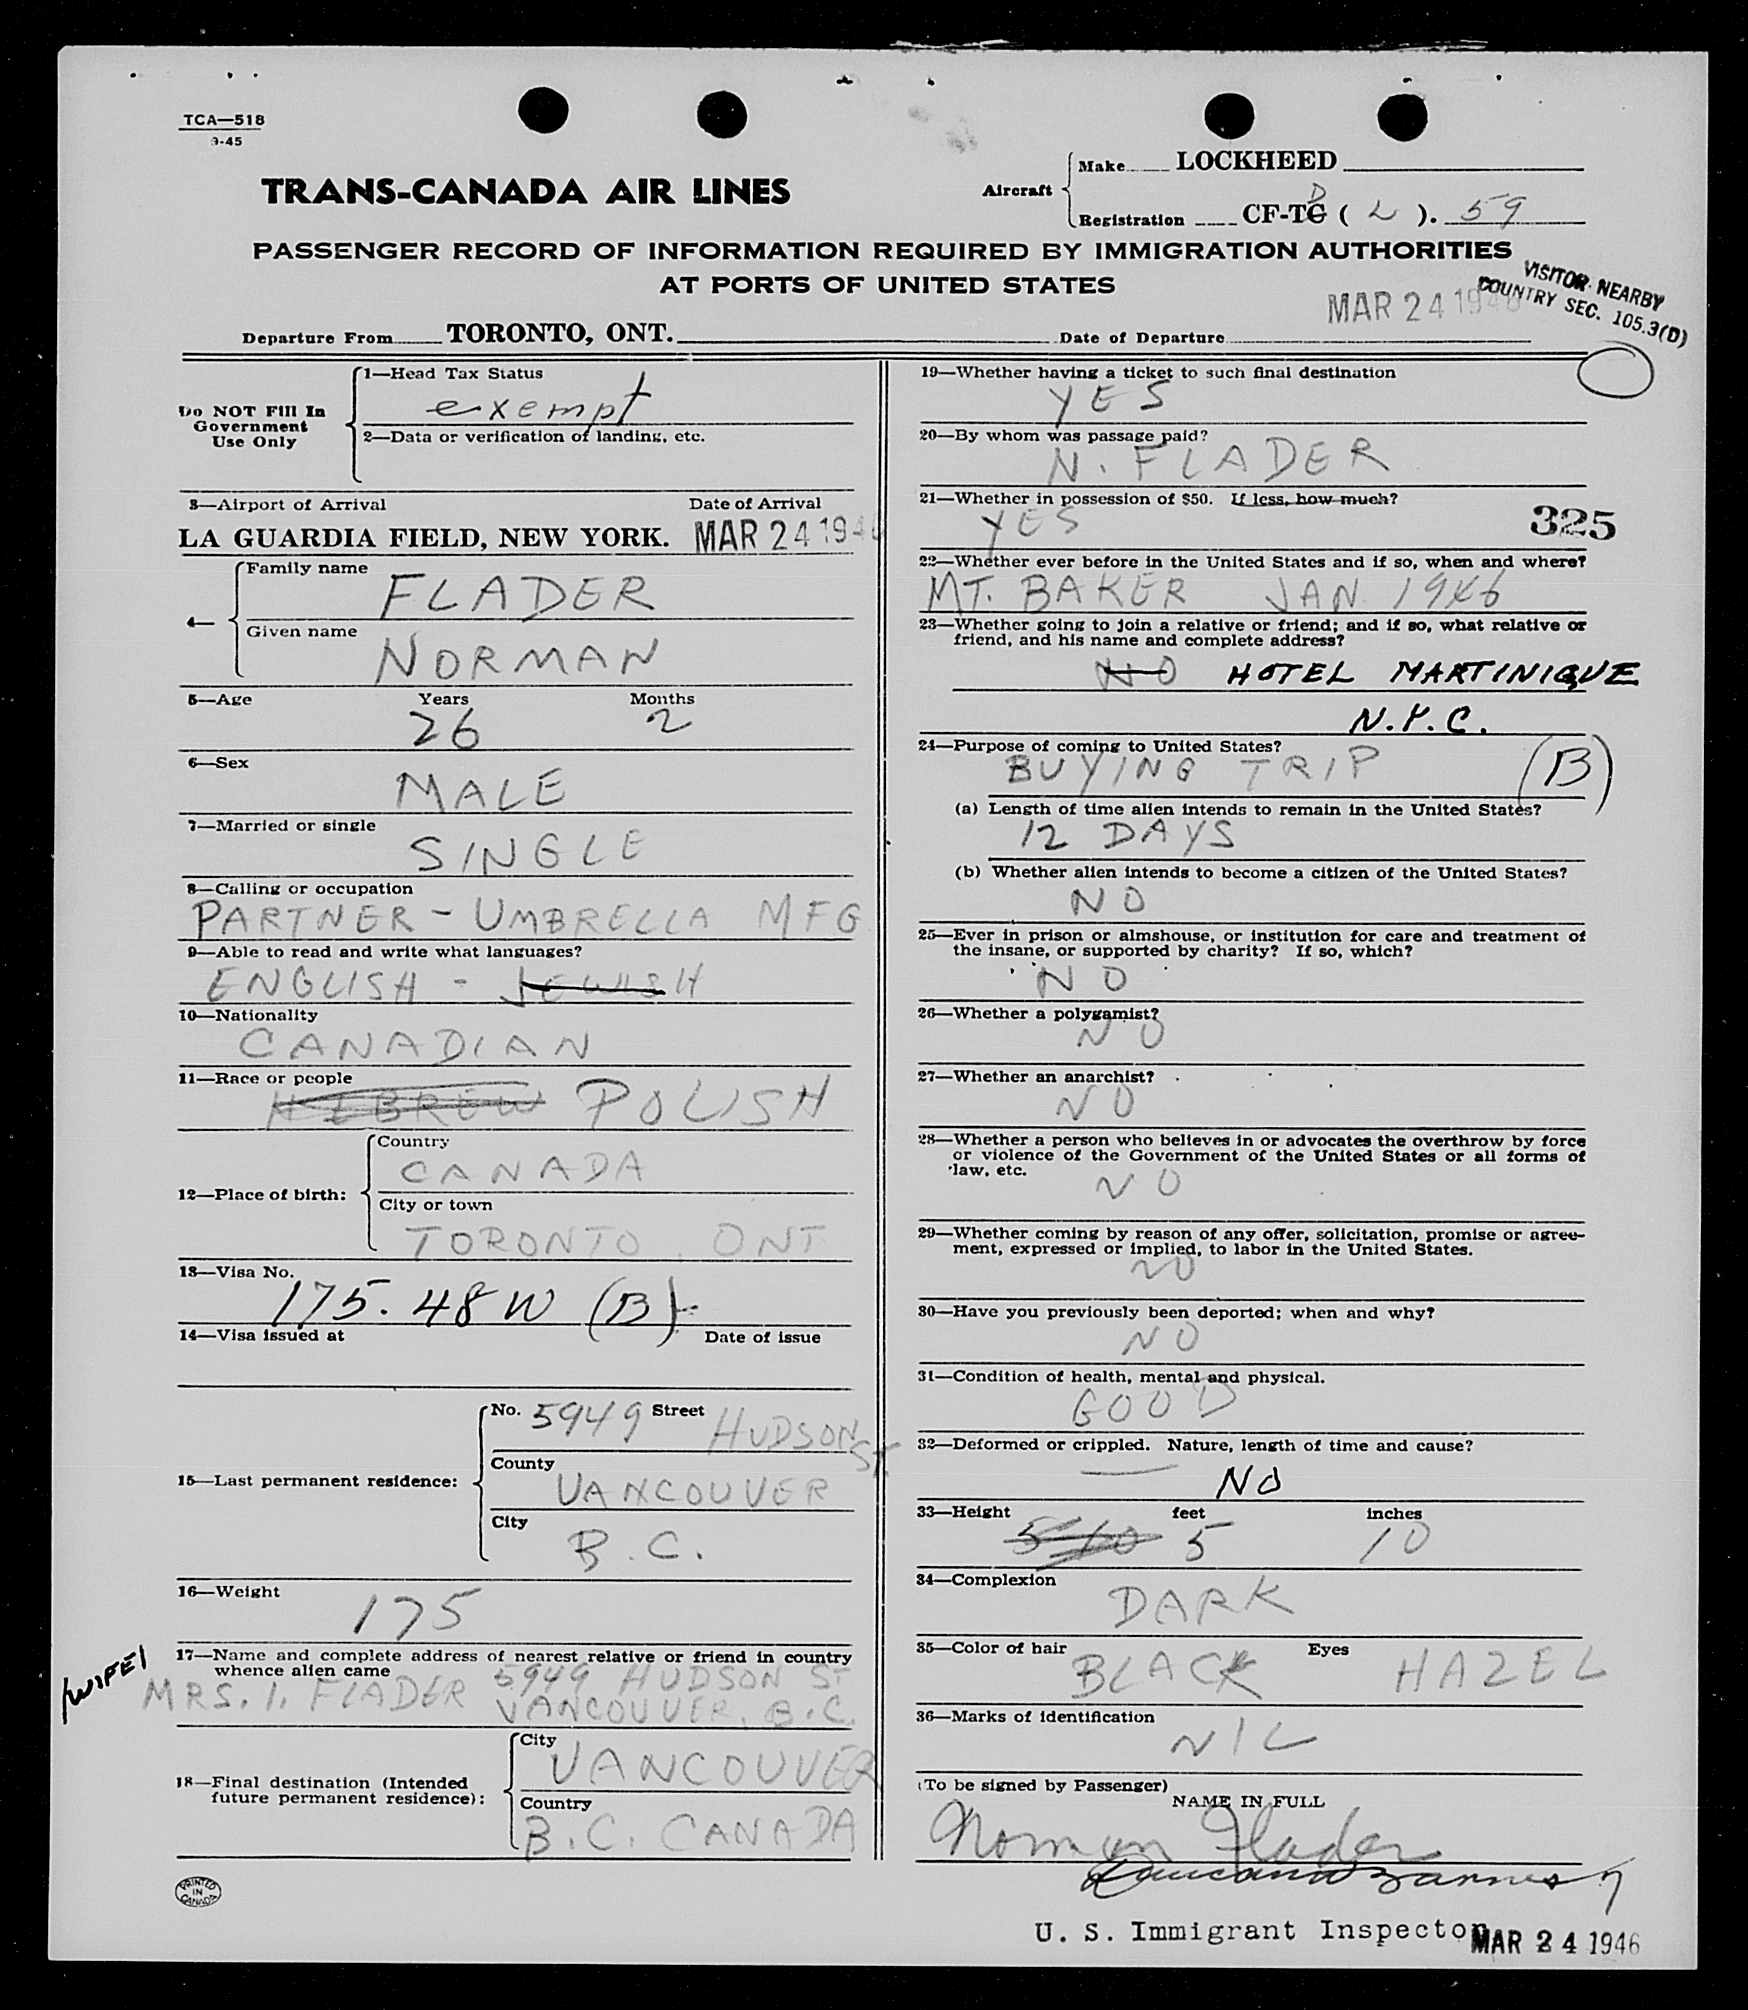 TCA—518
9-45
TRANS-CANADA AIR LINES
Aircraft
Make LOCKHEED
Registration CF-TG D ( L ). 59
PASSENGER RECORD OF INFORMATION REQUIRED BY IMMIGRATION AUTHORITIES
AT PORTS OF UNITED STATES
VISITOR NEARBY
COUNTRY SEC. 105.3(D)
MAR 24 1946
Departure From TORONTO, ONT. Date of Departure
Do NOT Fill In
Government
Use Only
1—Head Tax Status
exempt
2—Data or verification of landing, etc.
3—Airport of Arrival Date of Arrival
LA GUARDIA FIELD, NEW YORK. MAR 24 1946
4—
Family name
FLADER
Given name
NORMAN
5—Age Years Months
26 2
6—Sex
MALE
7—Married or single
SINGLE
8—Calling or occupation
PARTNER - UMBRELLA MFG
9—Able to read and write what languages?
ENGLISH - JEWISH
10—Nationality
CANADIAN
11—Race or people
HEBREW POLISH
12—Place of birth:
Country
CANADA
City or town
TORONTO, ONT
13—Visa No.
175.48W (B)
14—Visa issued at Date of issue
15—Last permanent residence:
No. 5949 Street HUDSON ST.
County
VANCOUVER
City
B.C.
16—Weight
175
17—Name and complete address of nearest relative or friend in country
whence alien came
(WIFE)
MRS. I. FLADER 5949 HUDSON ST
VANCOUVER, B.C.
18—Final destination (Intended
future permanent residence):
City
VANCOUVER
Country
B.C. CANADA
PRINTED
IN
CANADA
19—Whether having a ticket to such final destination
YES
20—By whom was passage paid?
N. FLADER
21—Whether in possession of $50. If less, how much?
YES
325
22—Whether ever before in the United States and if so, when and where?
MT. BAKER JAN 1946
23—Whether going to join a relative or friend; and if so, what relative or
friend, and his name and complete address?
NO HOTEL MARTINIQUE
N.Y.C.
24—Purpose of coming to United States?
BUYING TRIP (B)
(a) Length of time alien intends to remain in the United States?
12 DAYS
(b) Whether alien intends to become a citizen of the United States?
NO
25—Ever in prison or almshouse, or institution for care and treatment of
the insane, or supported by charity? If so, which?
NO
26—Whether a polygamist?
NO
27—Whether an anarchist?
NO
28—Whether a person who believes in or advocates the overthrow by force
or violence of the Government of the United States or all forms of
law, etc.
NO
29—Whether coming by reason of any offer, solicitation, promise or agree-
ment, expressed or implied, to labor in the United States.
NO
30—Have you previously been deported; when and why?
NO
31—Condition of health, mental and physical.
GOOD
32—Deformed or crippled. Nature, length of time and cause?
NO
33—Height feet inches
5'10 5 10
34—Complexion
DARK
35—Color of hair Eyes
BLACK HAZEL
36—Marks of identification
NIL
(To be signed by Passenger)
NAME IN FULL
Norman Flader
U. S. Immigrant Inspector
MAR 24 1946